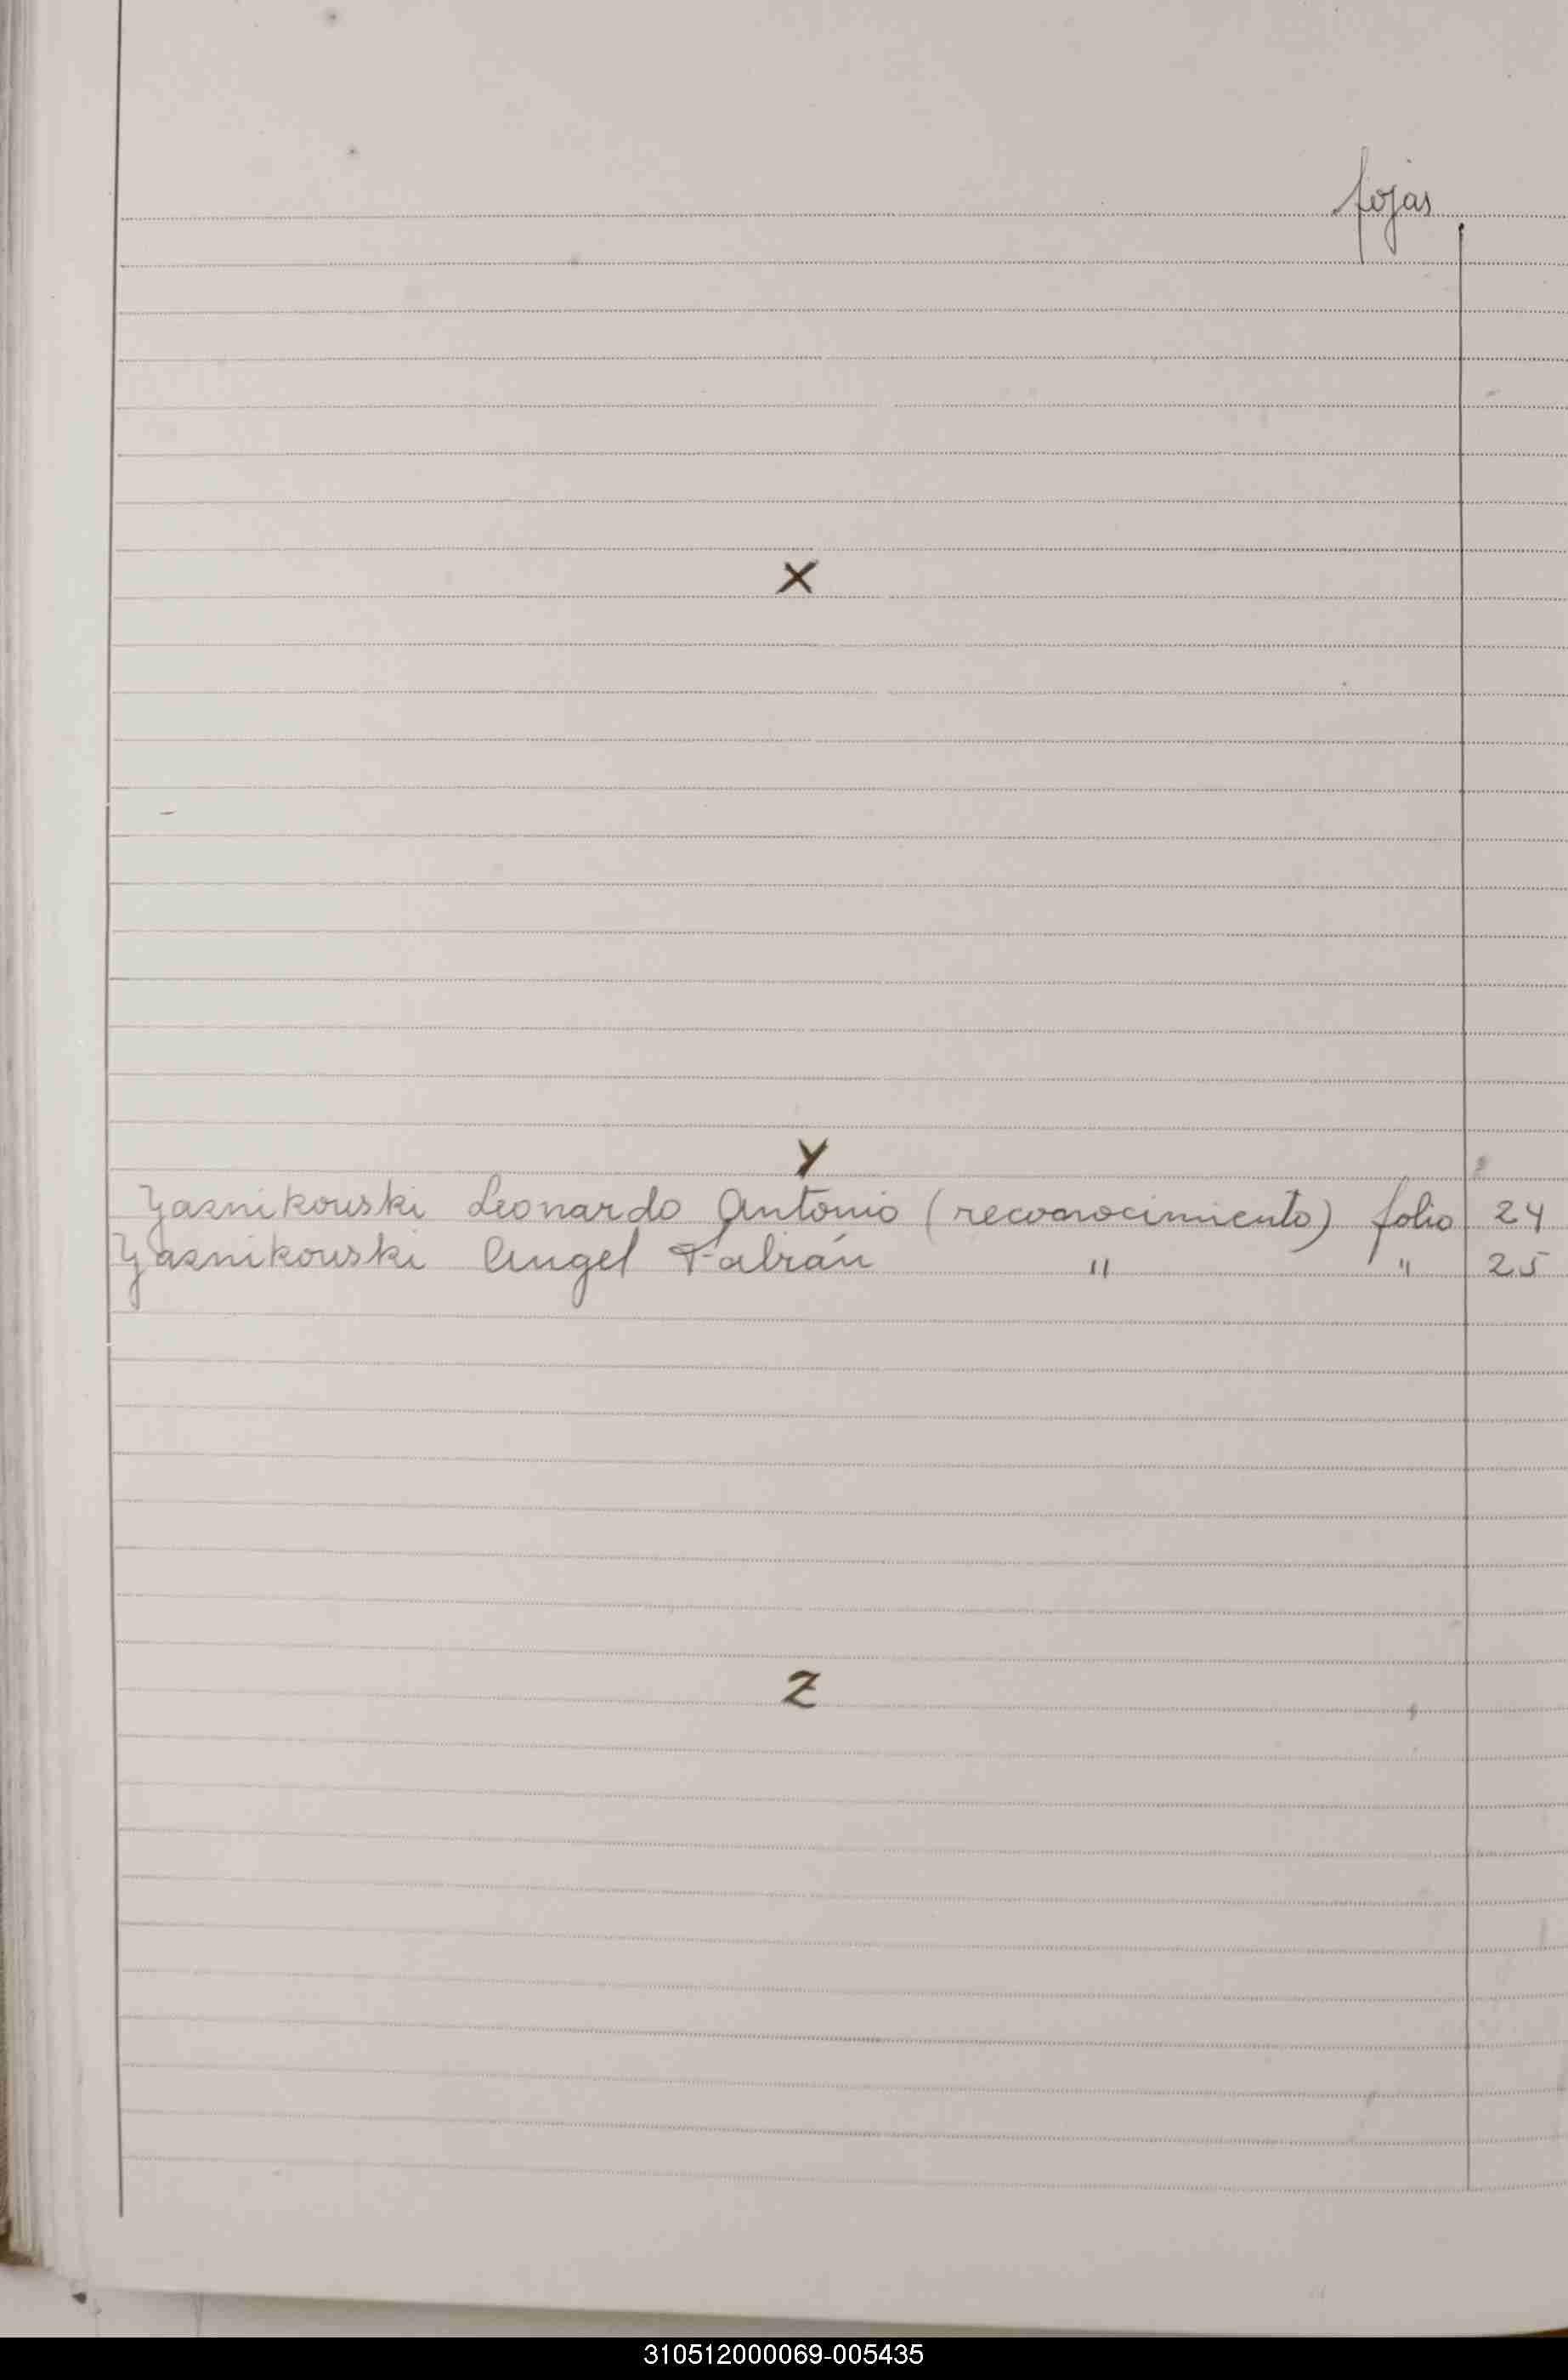 fojas
X
Y
Yasnikouski Leonardo Antonio (reconocimiento) folio 24
Yasnikouski Angel Fabián " " 25
Z
310512000069-005435